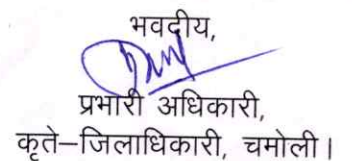 भवदीय,
प्रभारी अधिकारी,
कृते–जिलाधिकारी, चमोली।